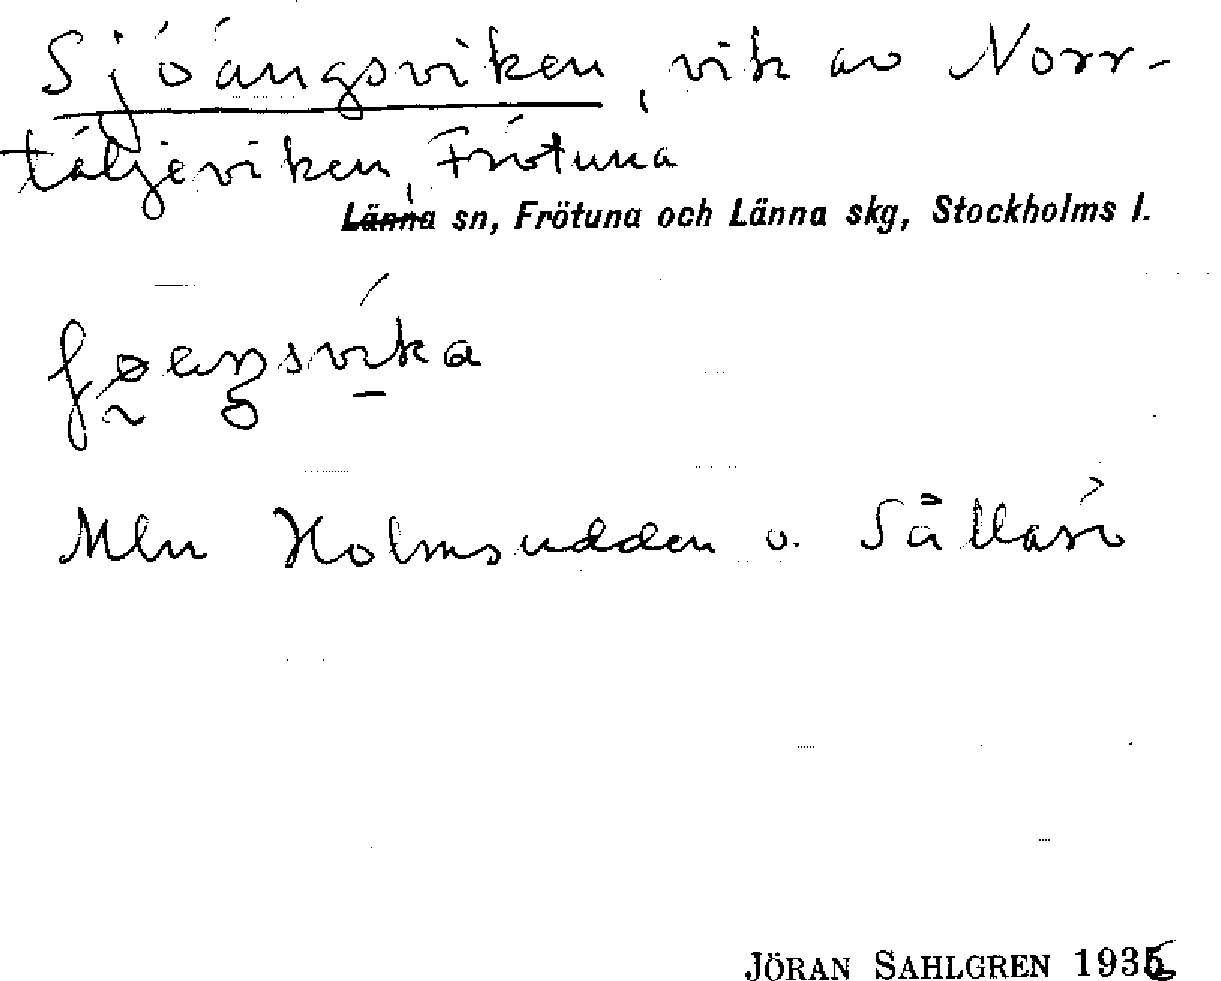 Sjöängsviken, vik av Norr-
täljeviken, Frötuna
Länna sn, Frötuna och Länna skg, Stockholms l.
Mln Holmsudden o. Sållarö
JÖRAN SAHLGREN 1936